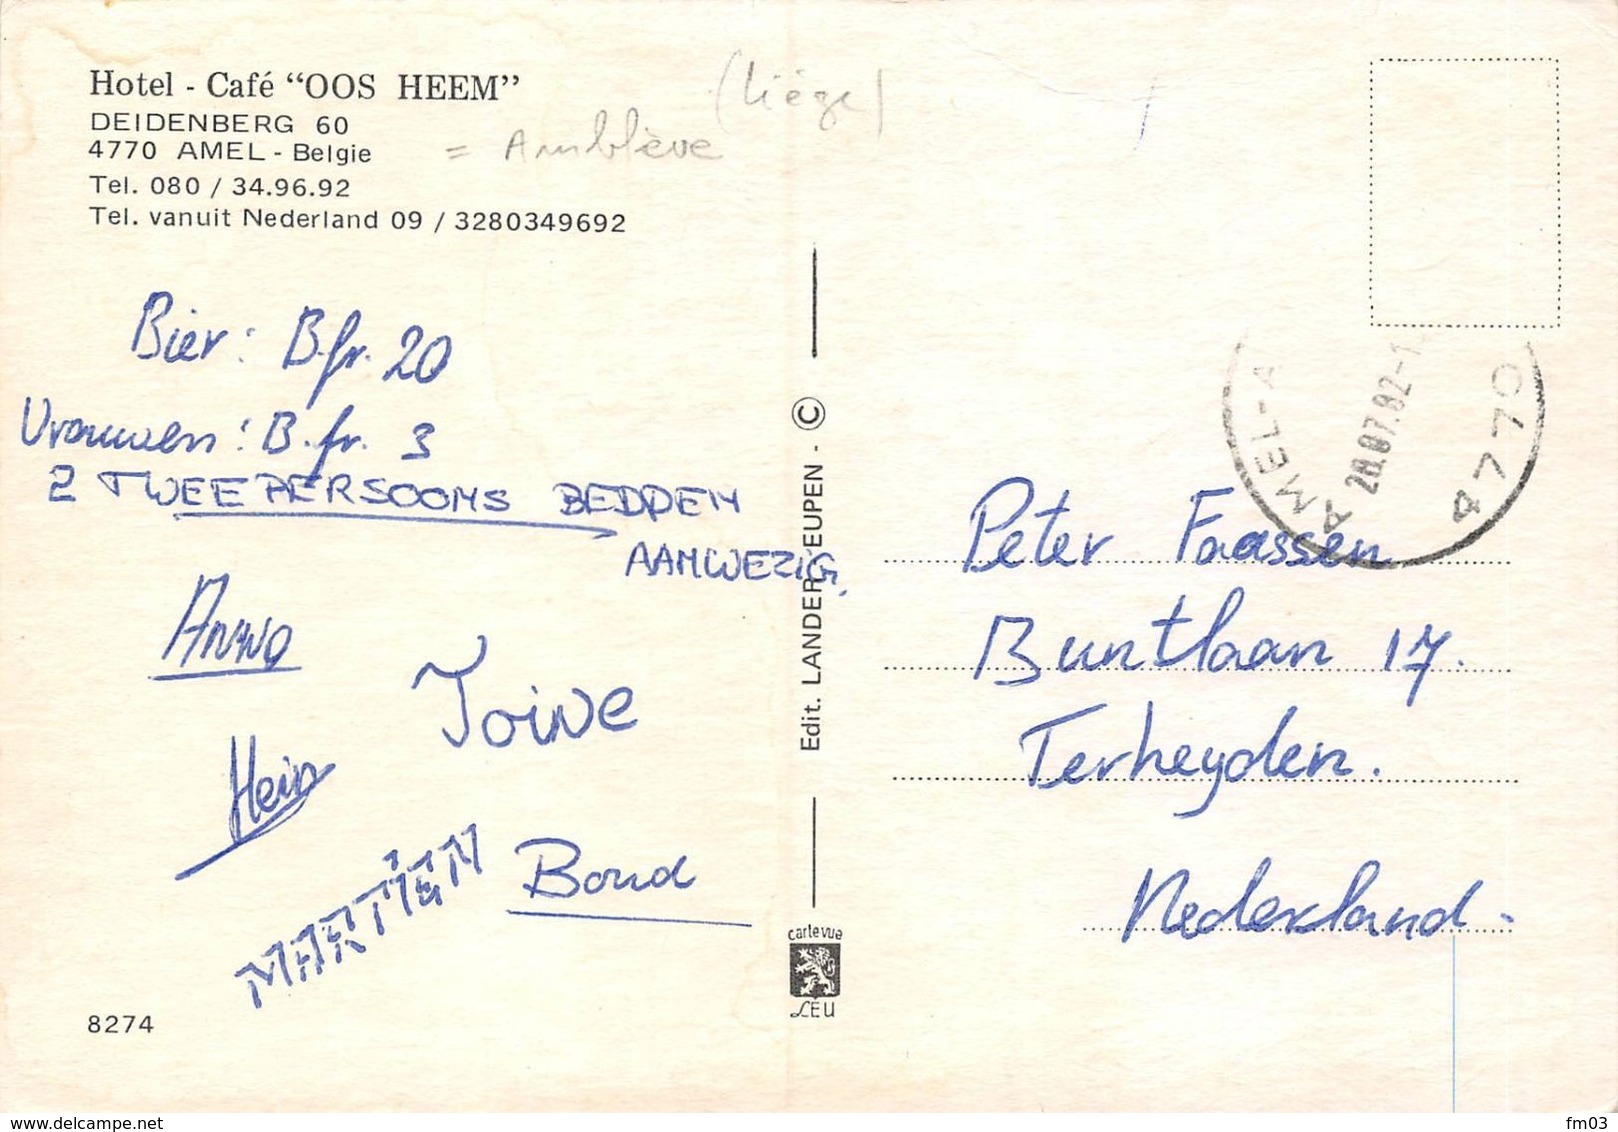 Hotel - Café “OOS HEEM”
DEIDENBERG 60
4770 AMEL - Belgie
Tel. 080 / 34.96.92
Tel. vanuit Nederland 09 / 3280349692
(Liége)
= Amblève
Bier: B.fr. 20
Vrouwen: B.fr. 3
2 TWEEPERSOONS BEDDEN
AANWEZIG.
ANNO
Toine
Hein
MARTIËN
Boud
8274
Edit. LANDER, EUPEN - ©
carte vue
LEU
AMEL-A
4770
Peter Faassen
Buntlaan 17.
Terheyden.
Nederland.
www.delcampe.net
fm03